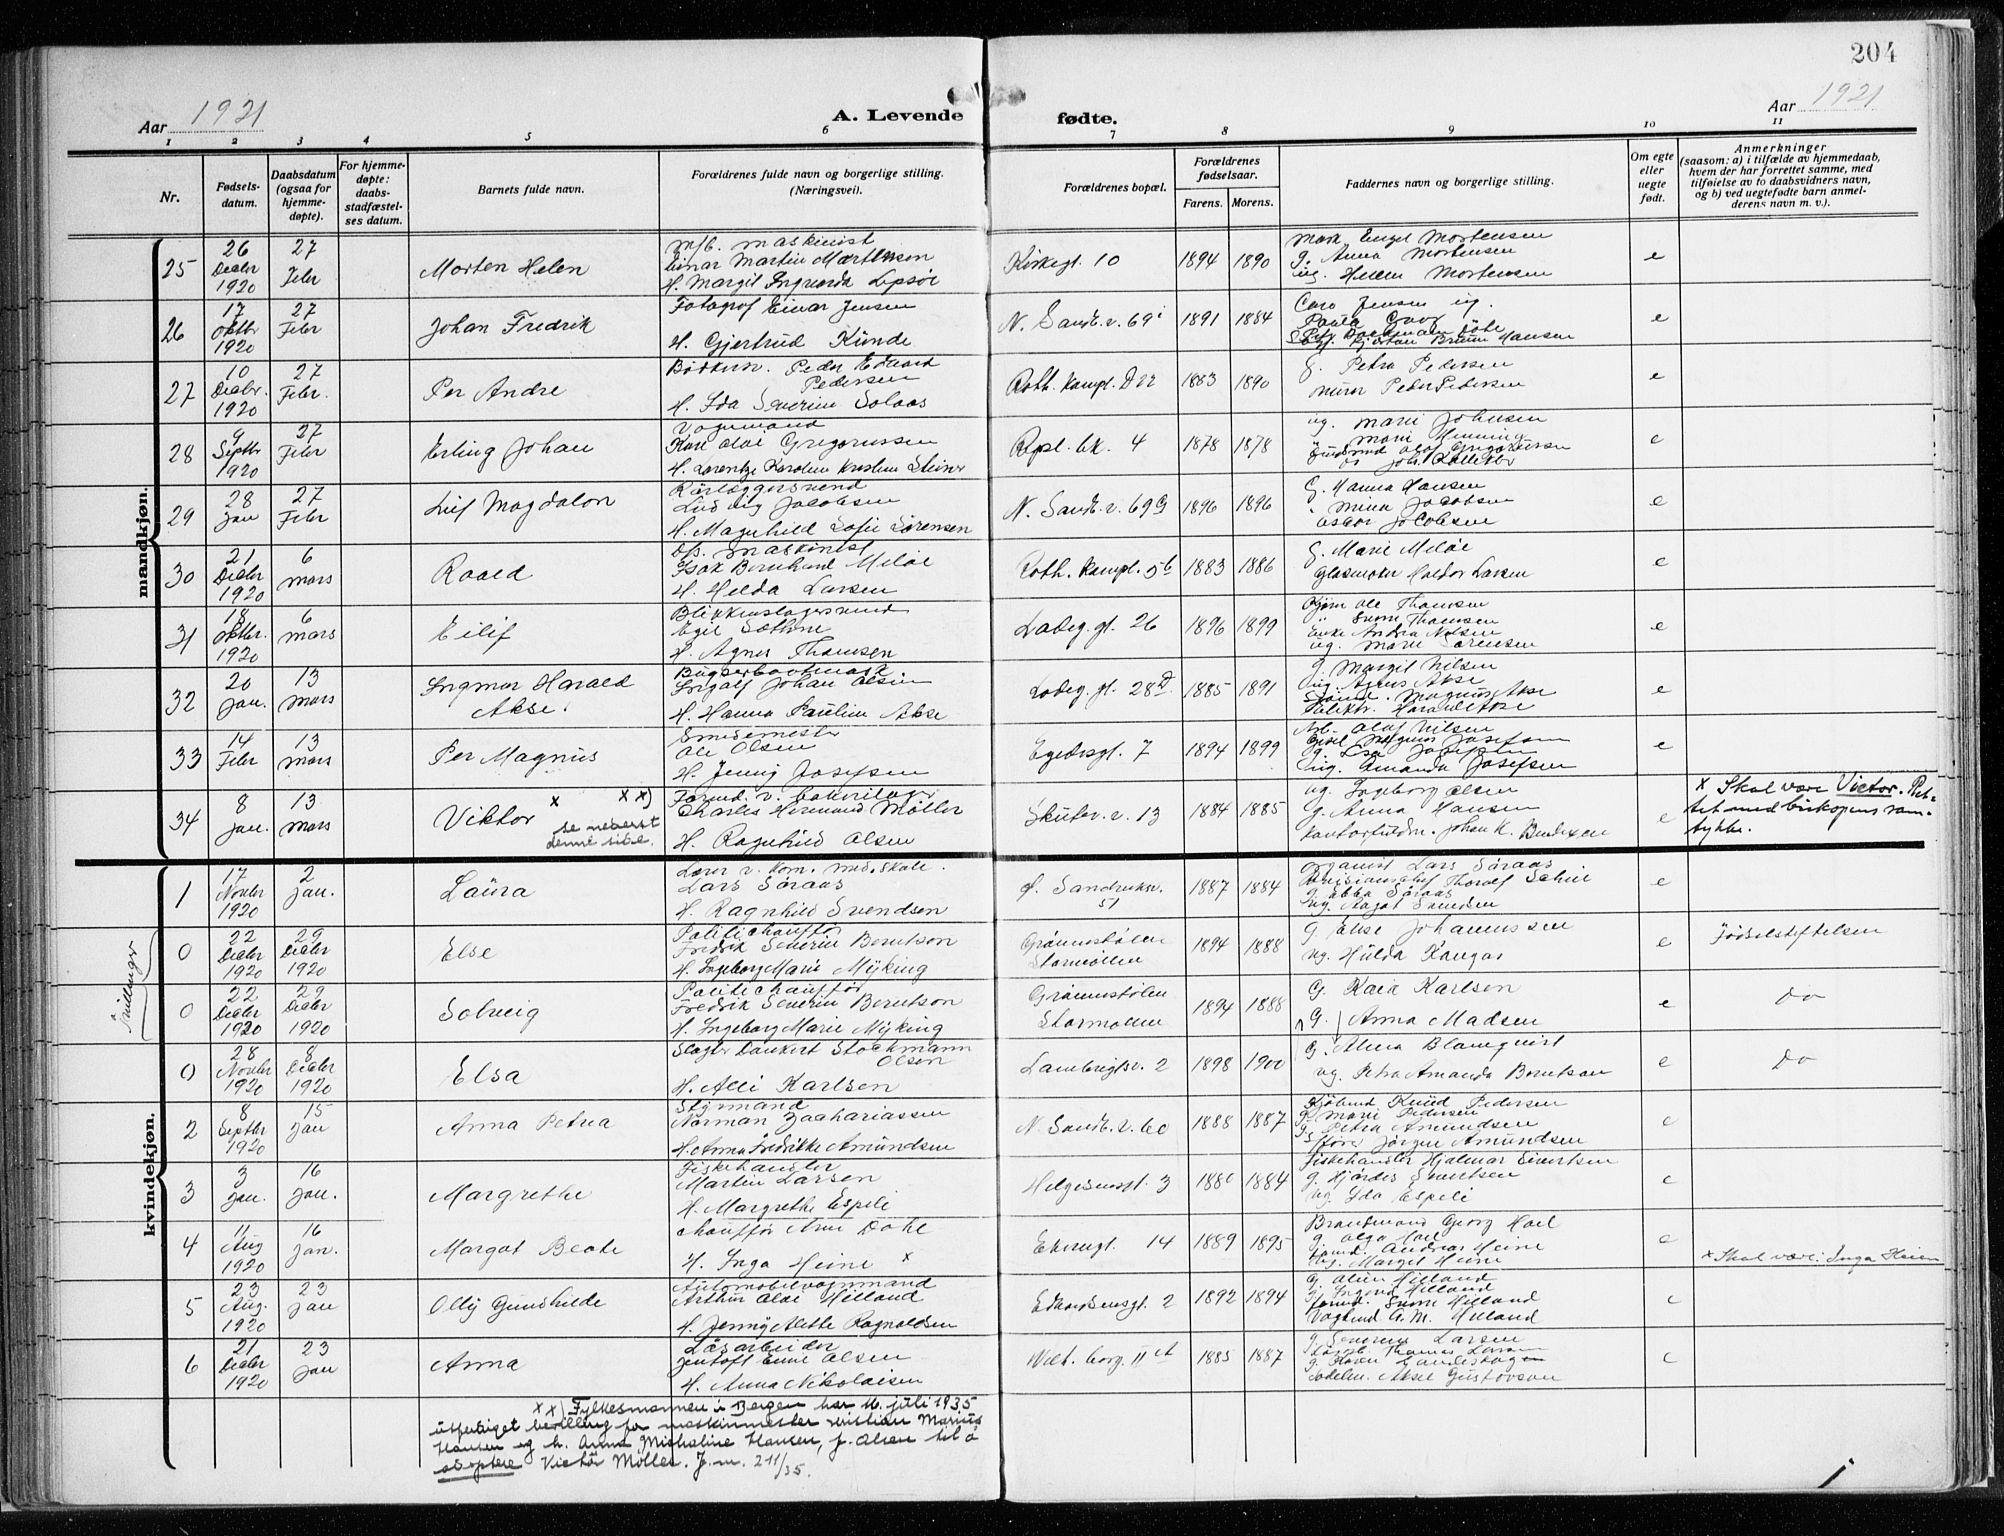 204
Aar 1921
A. Levende fødte.
Aar 1921
1 2 3 4 5 6 7 8 9 10 11
Nr.
Fødsels-
datum.
Daabsdatum
(ogsaa for
hjemme-
døpte).
For hjemme-
døpte:
daabs-
stadfæstel-
ses datum.
Barnets fulde navn.
Forældrenes fulde navn og borgerlige stilling.
(Næringsvei).
Forældrenes bopæl.
Forældrenes
fødselsaar.
Farens. Morens.
Faddernes navn og borgerlige stilling.
Om egte
eller
uegte
født.
Anmerkninger
(saasom: a) i tilfælde av hjemmedaab,
hvem der har forrettet samme, med
tilføielse av to daabsvidners navn,
og b) ved uegtefødte barn anmel-
derens navn m. v.).
mandkjøn.
25 26 Decbr 1920 27 Febr Morten Helen
m/b. maskinist
Einar Martin Martinsen
H. Margit Ingranda Lepsøe
Kirkegt. 10 1894 1890
Mask Engel Mortensen
g. Anna Mortensen
ug. Helen Mortensen
e
26 17 Oktbr 1920 27 Febr Johan Fredrik
Fotograf Einar Jensen
H. Gjertrud Kunde
N. Sandv. v. 69i 1891 1884
Caro Jensen ug.
e
27 10 Decbr. 1920 27 Febr. Per Andre
Peder Edvard
Pedersen
H. Ida Severine Solaas
Roth. kampl. D22 1883 1890
g. Petra Pedersen
murer Peder Pedersen
e
28 9 Septbr 1920 27 Febr Erling Johan
Vognmand
Karl Olai Gregoriussen
H. Lorentze Karoline Kristine Steiner
Rpsl. bk. 4 1878 1878
ug. Marie Johnsen
Marie Henning
e
29 28 Jan 27 Febr Leif Magdalon
Rørlæggersvend
Ludvig Jacobsen
H. Magnhild Sofie Sørensen
N. Sandv. v. 69G 1896 1896
g. Hanna Hansen
" Mina Jacobsen
Oskar Jacobsen
e
30 21 Decbr 1920 6 Mars Roald
maskinist
Isak Bernhard Meløe
H. Helda Larsen
Roth. kampl. 5b 1883 1886
g. Marie Meløe
Glasmester Haldor Larsen
e
31 18 Oktbr. 1920 6 Mars Eilif
Blikkenslagersvend
Egil
H. Agnes Thomsen
Ladeg. gt. 26 1896 1899
Bjørn Ole Thomsen
Enke Andrea Nilsen
ug. Marie Sørensen
e
32 20 Jan. 13 Mars Ingmar Harald
Akse.
Ingolf Johan Olsen
H. Hanna Pauline Akse
Ladeg. gt. 28D 1885 1891
g. Margit Nilsen
ug. Agnes Akse
Magnus Akse
Harald Akse
e
33 14 Febr 13 Mars Per Magnus
Smedemester
Ole Olsen
H. Jenny Josefsen
Egedesgt. 7 1894 1899
Arb. Olaf Nilsen
Magnus Josefsen
ug. Amanda Josefsen
e
34 8 Jan. 13 Mars Viktor x xx)
se nederst
denne side.
Charles Herman Møller
H. Ragnhild Olsen
Skutev. v. 13 1884 1885
ug. Ingeborg Olsen
g. Anna Hansen
Kontorfuldm. Johan K. Bendixen
e
x Skal være Victor. Ret-
tet med biskopens sam-
tykke.
kvindekjøn.
1 17 Novbr 1920 2 Jan. Laura
Lærer v. kom. mid. skole.
Lars Søraas
H. Ragnhild Svendsen
Ø. Sandviksv. 51 1887 1884
Organist Lars Søraas
g. Ebba Søraas
ug. Aagot Svendsen
e
Tvillinger
0 22 Decbr 1920 29 Decbr 1920 Else
Politichauffør
Fredrik Severin Berntson
H. Ingeborg Marie Myking
Grønnestølen
Stormøllen
1894 1888
g Else Johannessen
ug. Hulda Kongas
e Fødselstiftelsen
0 22 Decbr 1920 29 Decbr 1920 Solveig
Politichauffør
Fredrik Severin Berntson
H. Ingeborg Marie Myking
Grønnestølen
Stormøllen
1894 1888
g. Kaia Karlsen
g. Anna Madsen
e Do
0 28 Novbr 1920 8 Decbr 1920 Elsa
Slagter Dankert Stockmann
Olsen
H. Alli Karlsen
Lambrigtsv. 2 1898 1900
g. Alma Blomqvist
ug. Petra Amanda Berntson
e Do
2 8 Septbr 1920 15 Jan Anna Petrea
Styrmand
Norman Zachariassen
H. Anna Fredrikke Amundsen
N. Sandv. v. 60 1888 1887
Knud Pedersen
g. Marie Pedersen
g. Petra Amundsen
Jørgen Amundsen
e
3 3 Jan. 16 Jan. Margrethe
Fiskehandler
Martin Larsen
H. Margrethe Espeli
Helgesensgt. 3 1884
Fiskehandler Hjalmar Sivertsen
g. Hjørdis Sivertsen
ug. Ida Espeli
e
4 11 Aug 1920 16 Jan. Margot Beate
Chauffør Arne Dahl
H. Inga Heine x
14 1889 1895
Brandmand Georg Hoel
g. Olga Hoel
Andreas Heine
ug. Margit Heine
e
x Skal være: Inga Heien
5 23 Aug. 1920 23 Jan Olly Gunhilde
Automobilvognmand
Arthur Olai Hilland
H. Jenny Alette Ragnoldsen
Edvardsensgt. 2 1892 1894
g. Aline Hilland
g. Ingvda Hilland
Hilland
A.M. Hilland
e
6 21 Decbr 1920 23 Jan Anna
Løsarbeider
Jentoft Emil Olsen
H. Anna Nikolaisen
Welt. borg. 11A 1885 1887
g. Severine Larsen
Thomas Larsen
Sadelm. Aksel Gustavson
e
xx) Fylkesmannen i Bergen har 16. juli 1935
utferdiget bevilling for maskinmester Kristian Marius
Hansen og h. Anna Michaline Hansen, f. Olsen til å
adoptere Victor Møller. J.nr. 211/35.